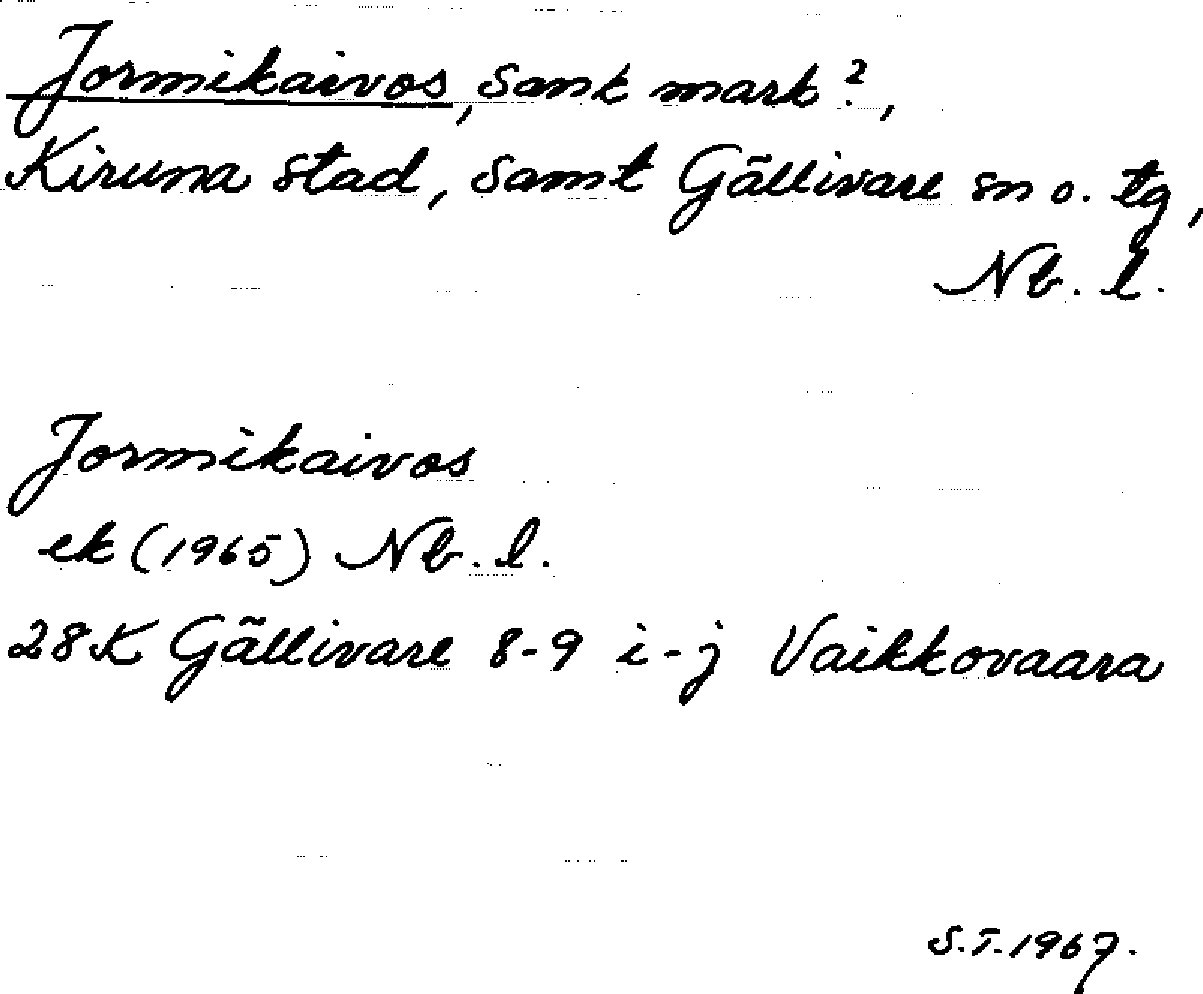 Jormikaivos, sank mark?,
Kiruna stad, samt Gällivare sn o. tg,
Nb. l.
Jormikaivos
ek (1965) Nb. l.
28K Gällivare 8-9 i-j Vaikkovaara
S.T. 1967.